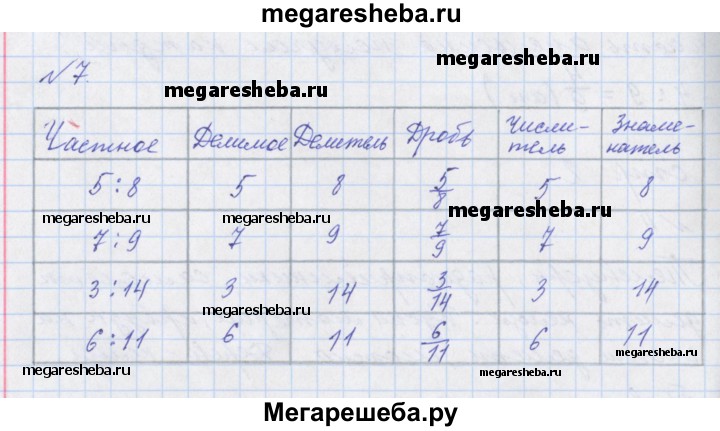 megaresheba.ru
№7.
megaresheba.ru
megaresheba.ru
Частное Делимое Делитель Дробь Числи-тель Знаме-натель
5:8 5 8 5/8 5 8
megaresheba.ru megaresheba.ru megaresheba.ru
7:9 7 9 7/9 7 9
3:14 3 14 3/14 3 14
megaresheba.ru
6:11 6 11 6/11 6 11
megaresheba.ru megaresheba.ru megaresheba.ru
Мегарешеба.ру